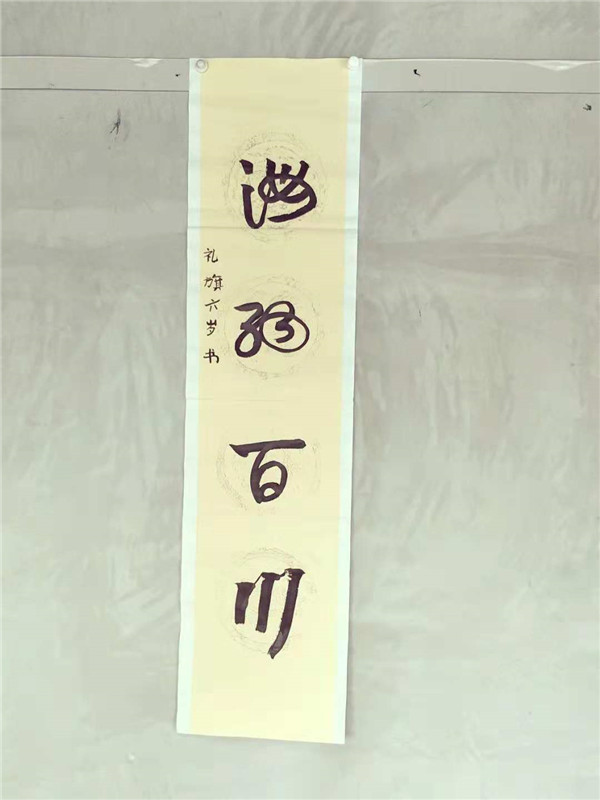 海纳百川
礼旗六岁书